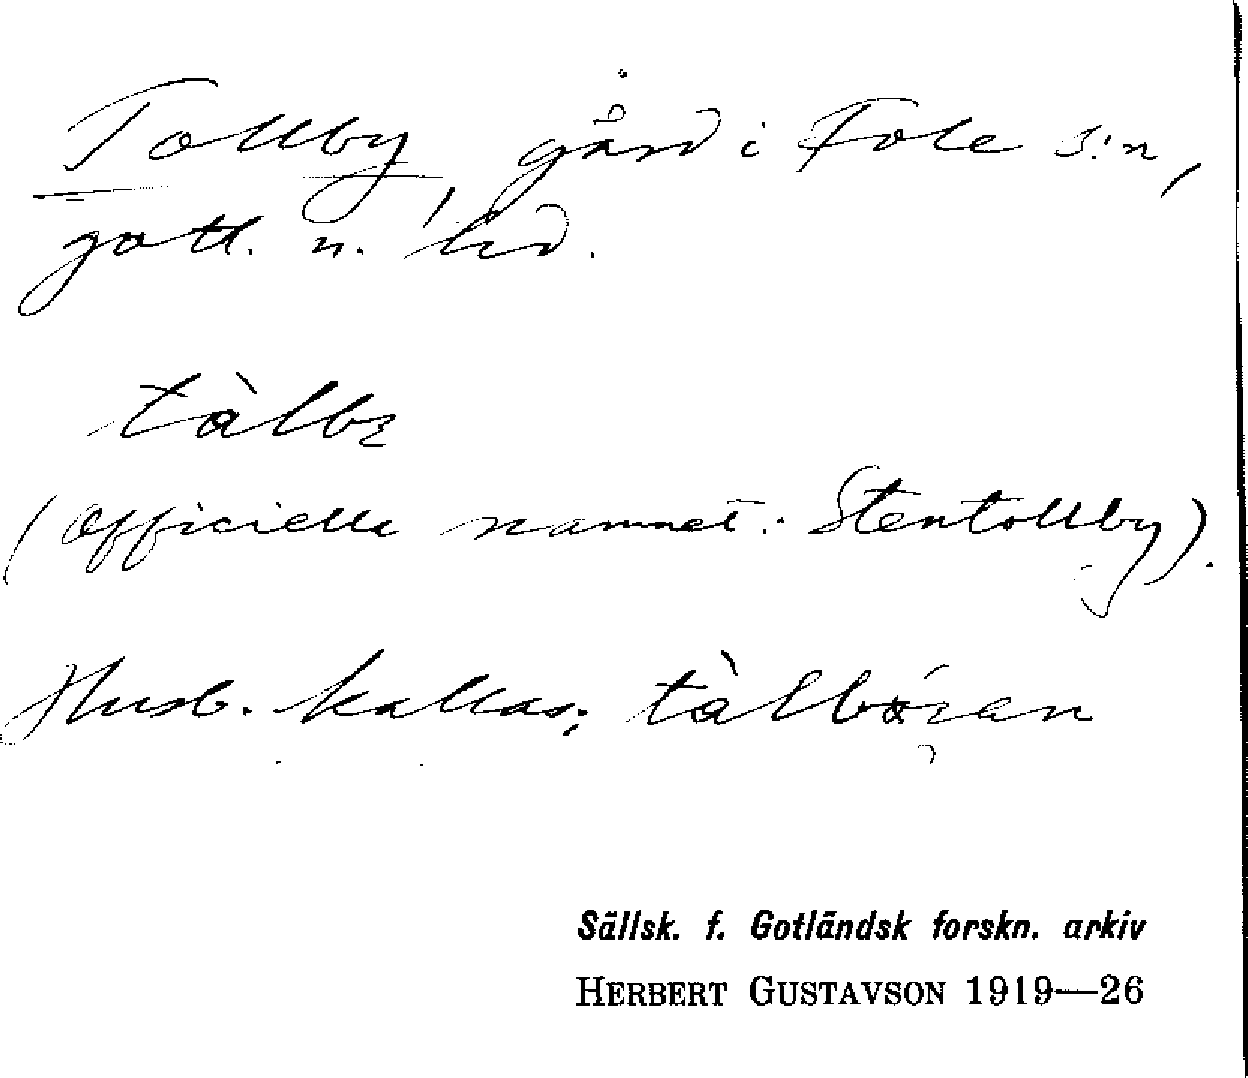 Tollby, gård i Fole s:n,
gotl. n. hd.
tàlbı
(officiella namnet: Stentollby).
Husb. kallas:
Sällsk. f. Gotländsk forskn. arkiv
HERBERT GUSTAVSON 1919—26